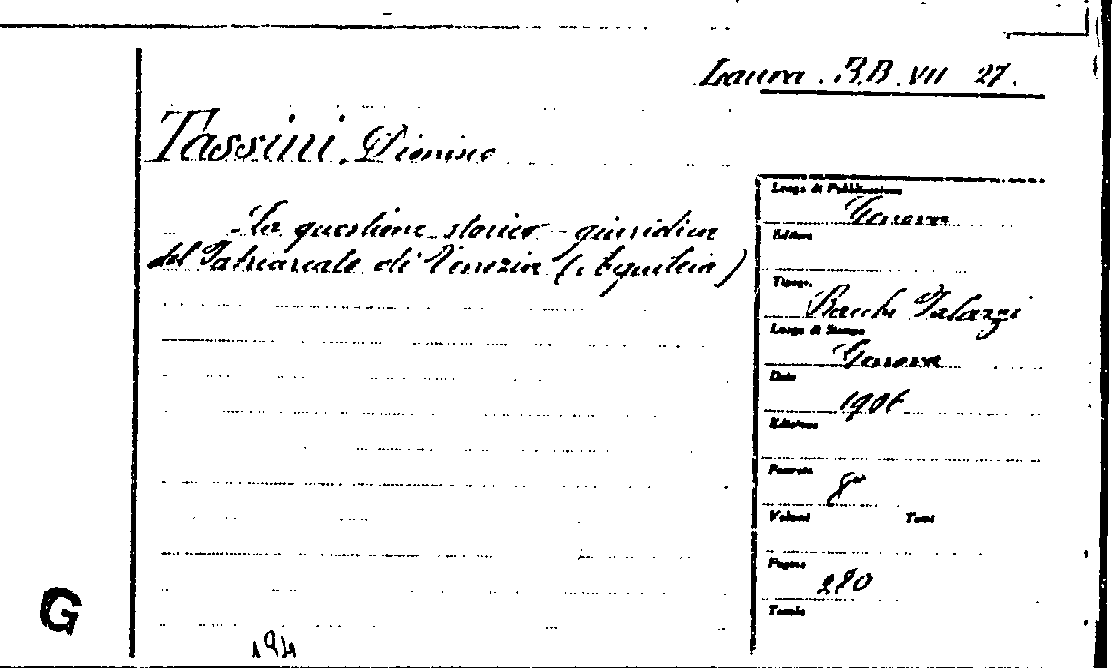 Laura. B.B. VII 27.
Tassini, Dionino
La questione storico-giuridica
del Patriarcato di Venezia (Aquileia)
Luogo di Pubblicazione
Genova
Editore
Tipogr.
Bacchi Palazzi
Luogo di Stampa
Genova
Data
1906
Edizione
Formato
8°
Volumi Tomi
Pagine
280
Tavole
G
194